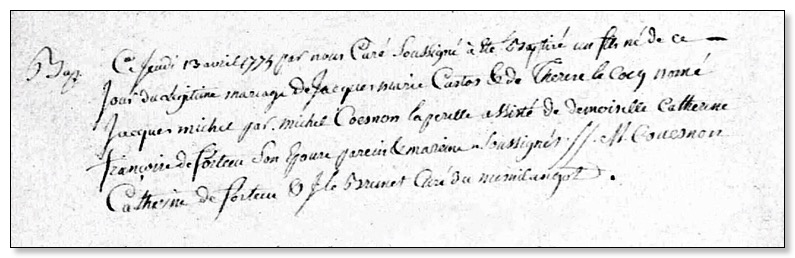 Bap. Ce Jeudi 13 avril 1775 par nous Curé Soussigné a été Baptizé un fils né de ce
Jour du legitime mariage de Jacques marie Castos & de Therese le Cocq nomé
Jacques michel par michel Coesnon laperelle assisté de demoiselle Catherine
françoise de forteu Son Epouse parein & mareine Soussignés // M. Couesnon
Catherine de forteu & J le Brunet Curé du mesnilangot.